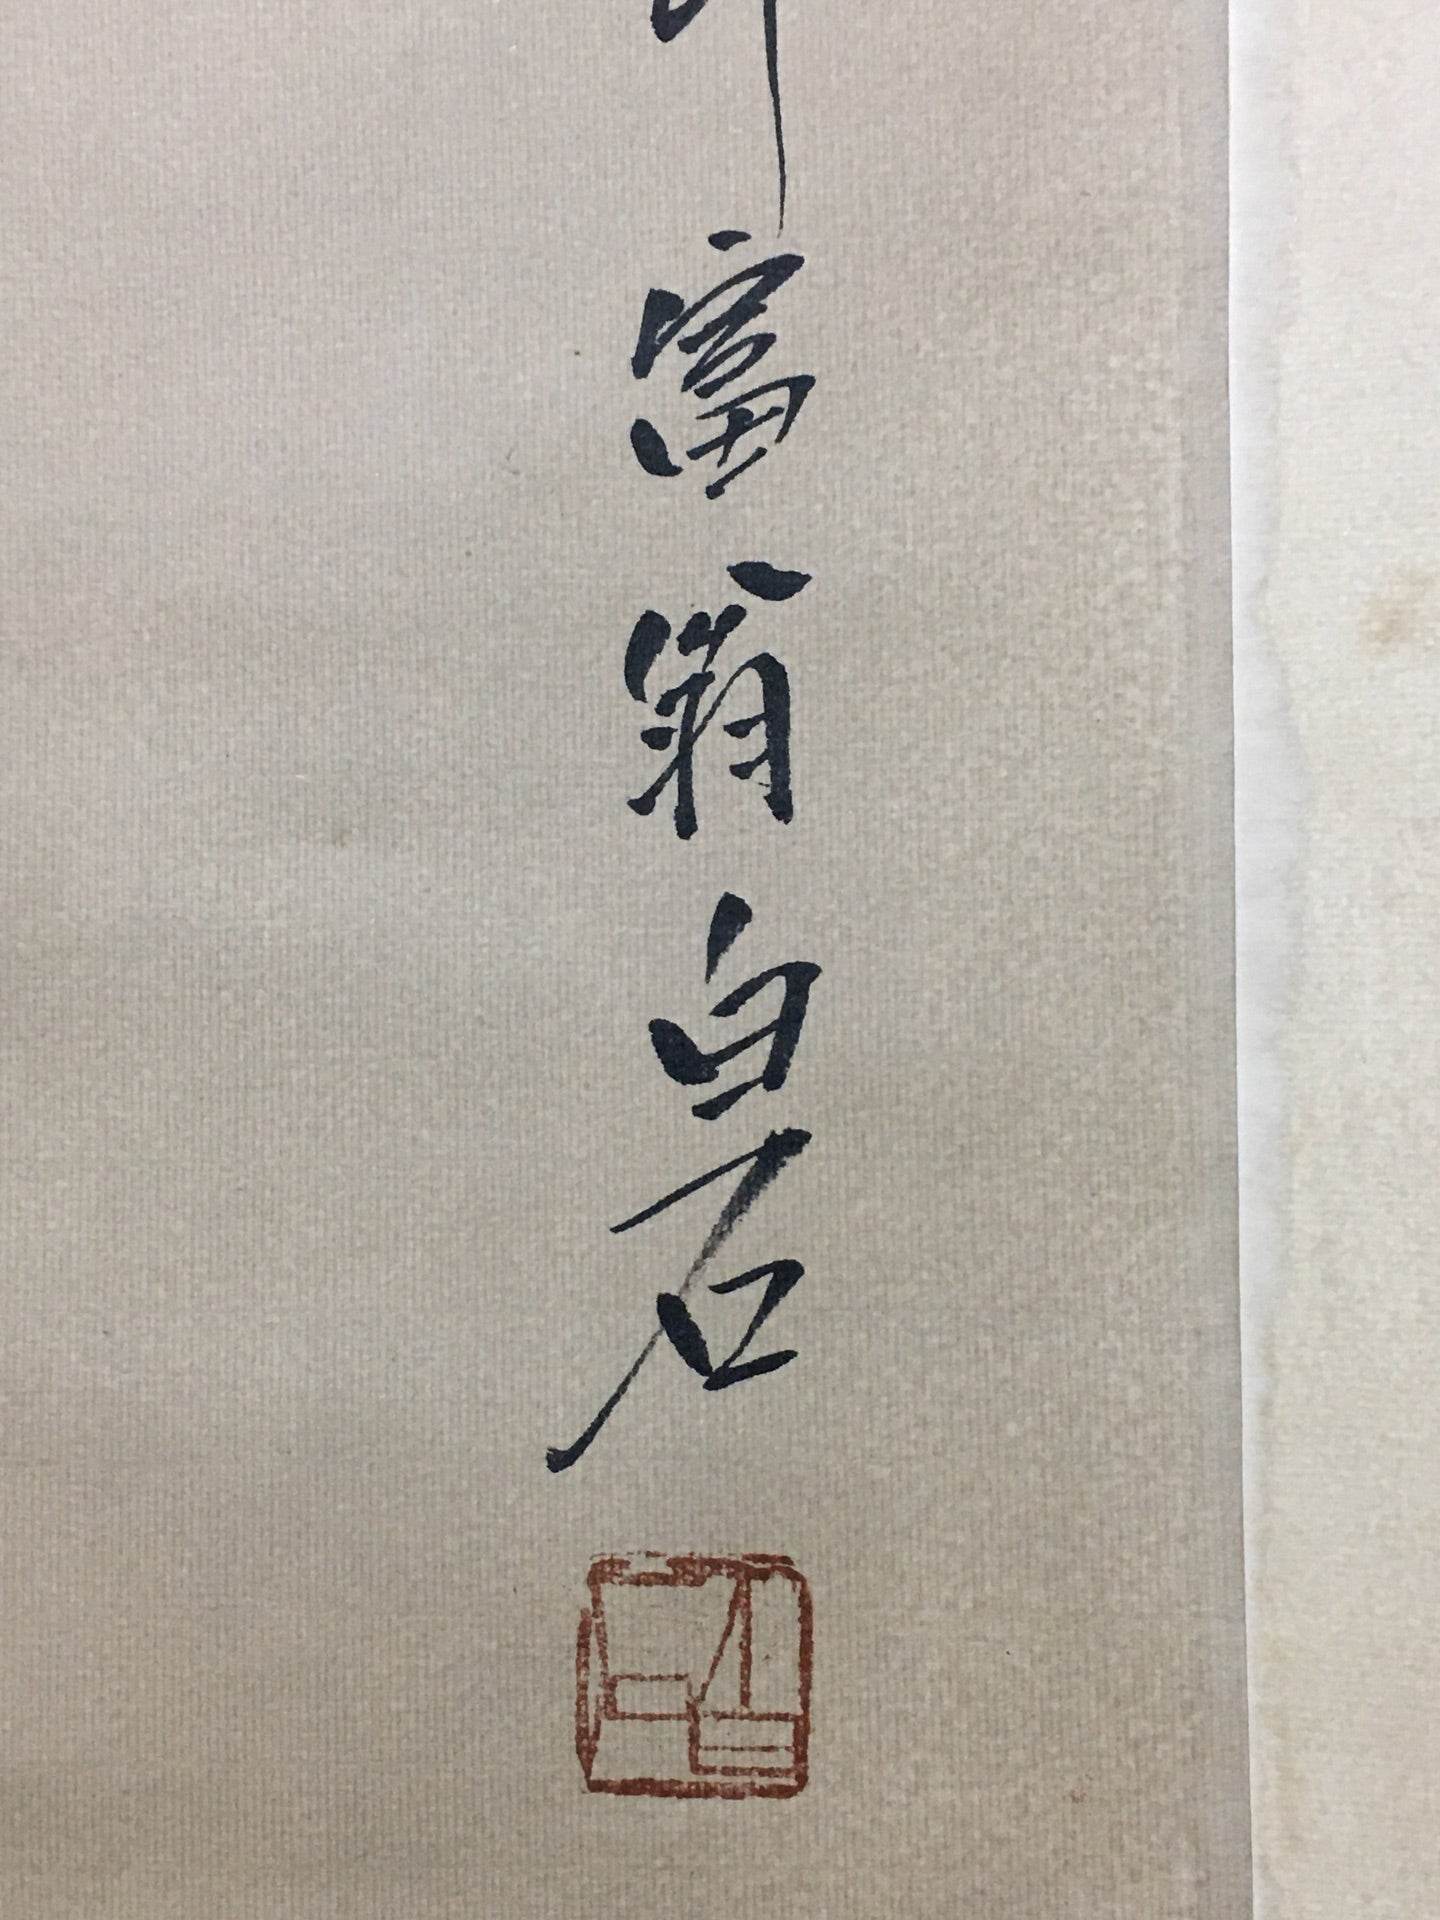 富翁白石
白石